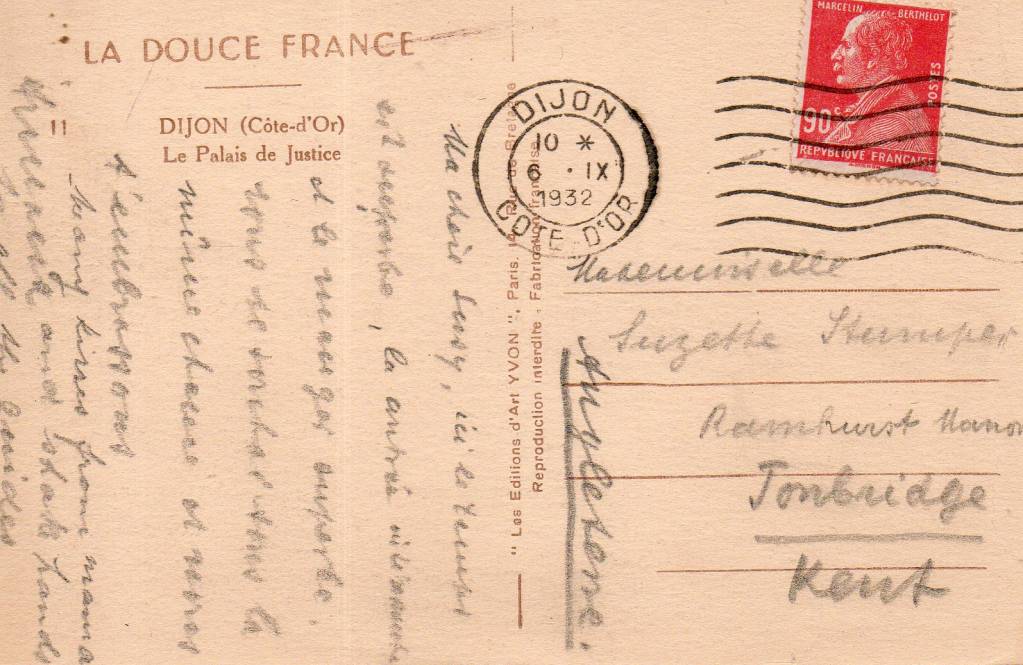 LA DOUCE FRANCE
11
DIJON (Côte-d'Or)
Le Palais de Justice
Ma chère Susy, ici le temps
est superbe, la entrée
et le manger superbe.
vous souhaitons la
même chance et nous
t'embrassons
Many kisses from mama
and shake hands
to all the
" Les Editions d'Art YVON ", Paris, Rue de Bretagne
Reproduction interdite - Fabrication française
DIJON
10 *
6 · IX
1932
COTE D'OR
MARCELIN BERTHELOT
POSTES
90c
REPVBLIQVE FRANÇAISE
Mademoiselle
Suzette Stumper
Ramhurst Manor
Tonbridge
Kent
Angleterre.